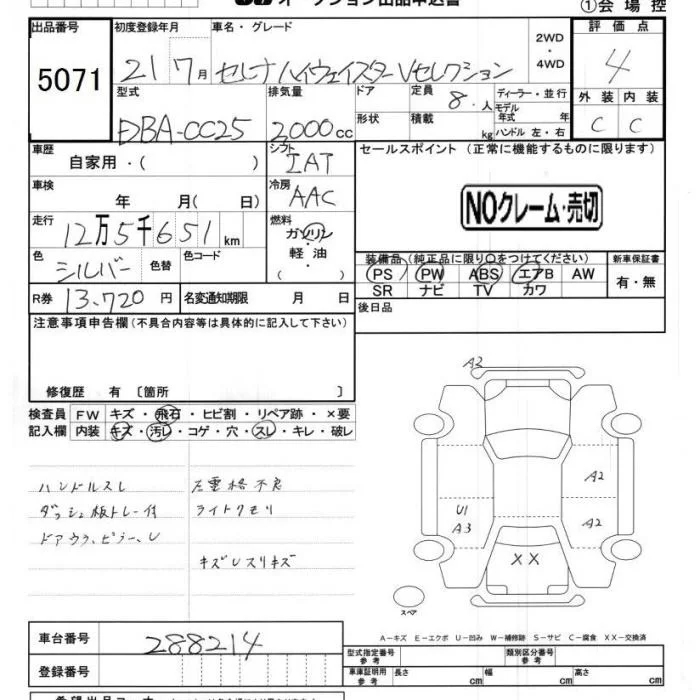 オークション出品申込書
①会場控
出品番号
5071
初度登録年月 車名・グレード
21 7月 セレナ ハイウェイスターVセレクション
2WD
・
4WD
評価点
4
外装 内装
C C
型式 排気量
DBA-CC25 2000cc
ドア 定員 8.人
ディーラー・並行
モデル年式 年
形状 積載 kg ハンドル 左・右
車歴
自家用・( )
シフト
IAT
車検
年 月( 日)
冷房
AAC
走行
12万5千651km
燃料
ガソリン
・
軽油
・
色
シルバー 色替
色コード
R券 13.720円
名変通知期限 月 日
セールスポイント (正常に機能するものに限ります)
NOクレーム・売切
装備品 (純正品に限り〇をつけてください)
PS PW ABS エアB AW
SR ナビ TV カワ
新車保証書
有・無
後日品
注意事項申告欄(不具合内容等は具体的に記入して下さい)
修復歴 有 〔箇所 〕
検査員記入欄
FW キズ・飛石・ヒビ割・リペア跡・×要
内装 キズ・汚レ・コゲ・穴・スレ・キレ・破レ
ハンドルスレ
ダッシュ板トレー付
ドアウラ、ピラー、レ
ライトクモリ
キズレスリキズ
A2
A2
U1
A3
A2
XX
スペア
A-キズ E-エクボ U-凹み W-補修跡 S-サビ C-腐食 XX-交換済
車台番号 288214
登録番号
型式指定番号
参考
類別区分番号
参考
車庫証明用
参考
長さ cm 幅 cm 高さ cm
希望出品コーナー